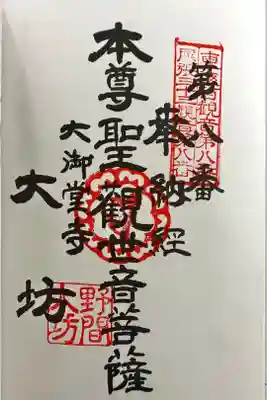 第八番
奉納経
本尊聖観世音菩薩
大御堂寺
大坊
野間
大坊